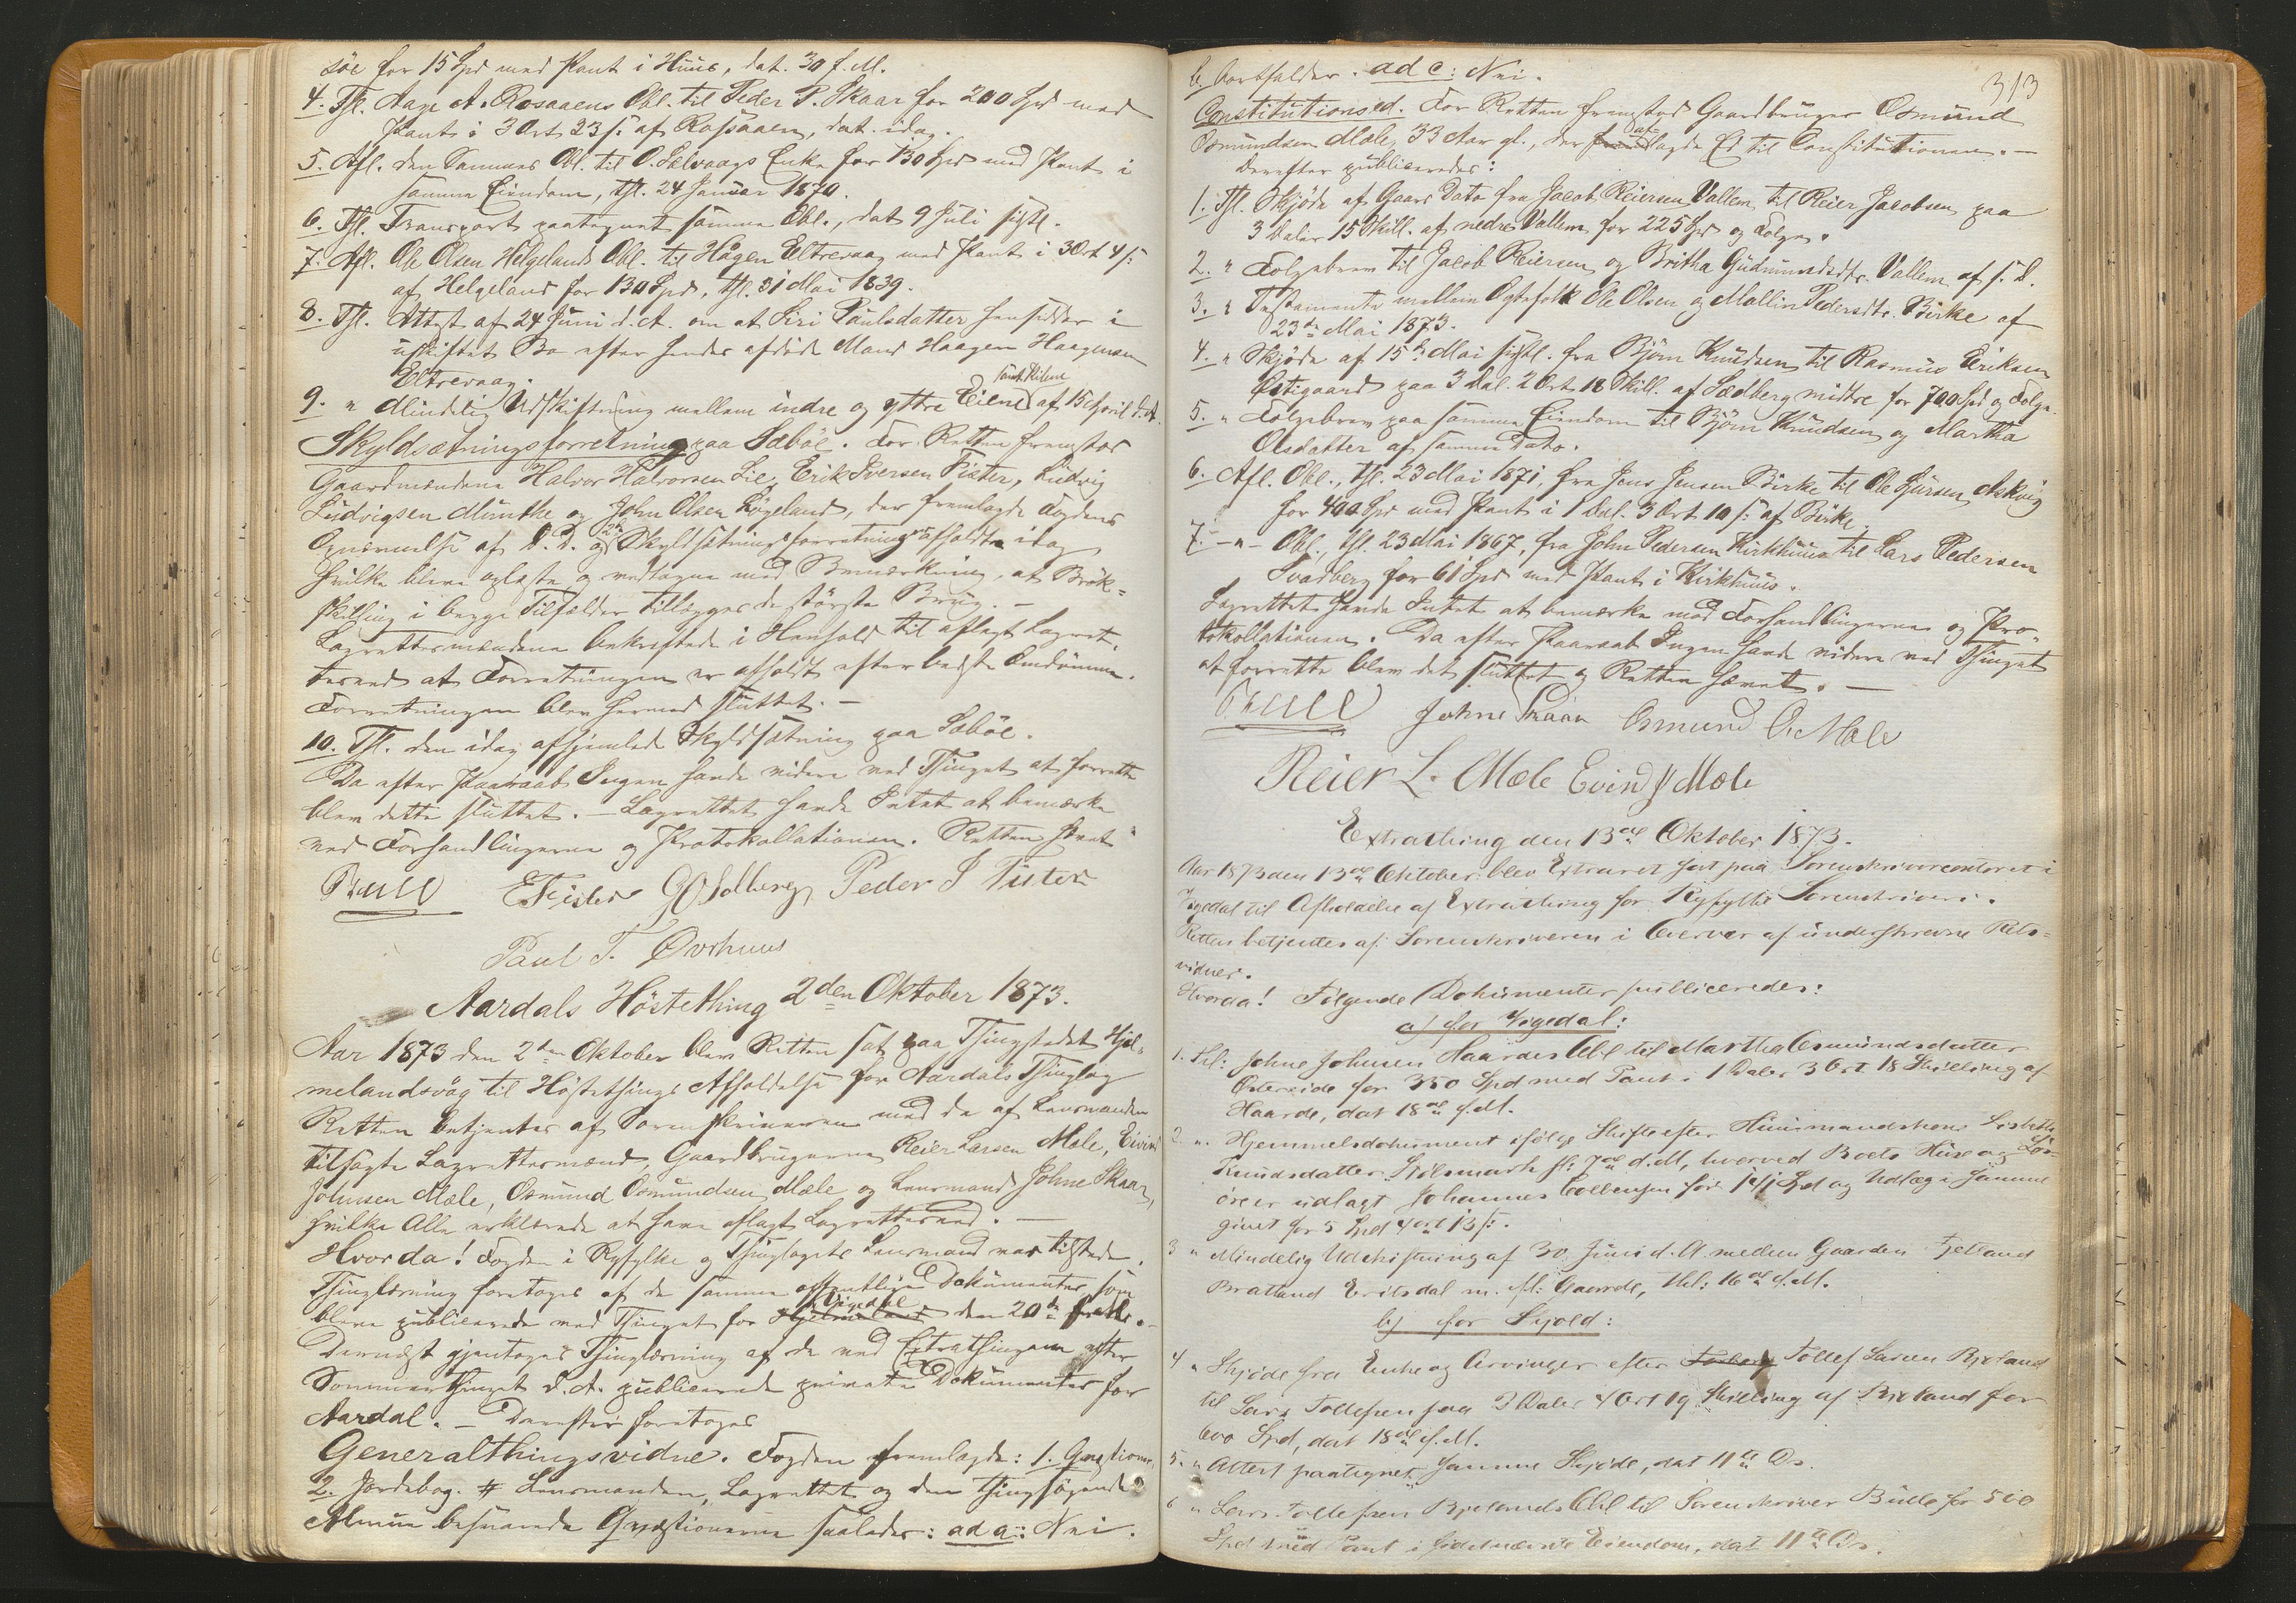 søe for 15 Spd med Pant i Huus, dat. 30 f. M.
4. Thl. Aage A. Rosaaens Obl. til Peder P. Skaar for 200 Spd med
Pant i 3 Ort 23 s: af Rossaaen, dat. idag.
5. Afl. den Sammes Obl. til O. Sælvaags Enke for 130 Spd med Pant i
samme Eiendom, thl. 24 Januar 1870.
6. Thl. Transport paategnet samme Obl., dat 9 Juli sidstl.
7. Afl. Ole Olsen Helgelands Obl. til Hågen Eltrevaag med Pant i 3 Ort 4 s:
af Helgeland for 130 Spd, thl. 31 Mai 1839.
8. Thl. Attest af 24 Juni d. A. om at Siri Paulsdatter hensidder i
uskiftet Bo efter hendes afdøde Mand Haagen Haagensen
Eltrevaag.
9. " Mindelig Udskiftning mellem indre og yttre Eiene samt Kilene af 15 April d. A.
Skyldsætningsforretning paa Sæbøe. For Retten fremstod
Gaardmændene Halvor Halvorsen Lie, Erik Iversen Fister, Ludvig
Ludvigsen Munthe og John Olsen Høgeland, der fremlagde Fogdens
Opnævnelse af D. D. og 2de Skyldsætningsforretninger afholdte idag
hvilke bleve oplæste og modtagne med Bemærkning, at Brøk=
skilling i begge Tilfælder tillægges de største Brug. —
Lagrettesmændene bekræftede i Henhold til aflagt Lagret,
tesed at Forretningen er afholdt efter bedste Omdømme.
Forretningen blev hermed sluttet. —
10. Thl. den idag afhjemlede Skyldsætning paa Sæbøe.
Da efter Paaraab Ingen havde videre ved Thinget at forrette
blev dette sluttet. — Lagrettet havde Intet at bemærke
ved Forhandlingerne og Protokollationen. Retten hævet
Bull E Fister G O Solberg, Peder S Fister
Paul T. Øvrhuus
Aardals Høstething 2den Oktober 1873.
Aar 1873 den 2den Oktober blev Retten sat paa Thingstedet Hjel=
melandsvåg til Høstethings Afholdelse for Aardals Thinglag
Retten betjentes af Sorenskriveren med de af Lensmanden
tilsagte Lagrettesmænd, Gaardbrugerne Reier Larsen Mæle, Eivind
Johnsen Mæle, Osmund Osmundsen Mæle og Lensmand Johne Skaar,
hvilke Alle erklærede at have aflagt Lagrettesed. —
Hvor da! Fogden i Ryfylke og Thinglagets Lensmand var tilstede.
Thinglæsning foretoges af de samme offentlige Dokumenter som
bleve publicerede ved Thinget for Hjelmeland Vigedal den 20de f. M.
Dernæst gjentoges Thinglæsning af de ved Extrathingene efter
Sommerthinget d. A. publicerede private Dokumenter for
Aardal. — Derefter foretoges
Generalthingsvidne. Fogden fremlagde: 1. Qvæstioner
2. Jordebog. # Lensmanden, Lagrettet og den thingsøgende
Almue besvarede Qvæstionerne saaledes: ad a: Nei.
313
b. bortfalder. ad c: Nei.
Constitutionsed. For Retten fremstod Gaardbruger Osmund
Osmundsen Mæle, 33 Aar gl., der frem aflagde Ed til Constitutionen. —
Derefter publiceredes:
1. Thl. Skjøde af Gaars Dato fra Jacob Reiersen Vallem til Reier Jacobsen paa
3 Daler 15 Skill. af nedre Vallem for 225 Spd og Folge.
2. " Folgebrev til Jacob Reiersen og Britha Gudmundsdtr. Vallem af s. D.
3. " Testamente mellem Egtefolk Ole Olsen og Mallin Pedersdtr. Birke af
23de Mai 1873.
4. " Skjøde af 15de Mai sidstl. fra Bjørn Knudsen til Rasmus Eriksen
Østigaard paa 3 Dal. 2 Ort 18 Skill. af Sædberg midtre for 700 Spd og Folge.
5. " Folgebrev paa samme Eiendom til Bjørn Knudsen og Martha
Olsdatter af samme Dato.
6. Afl. Obl., thl. 23 Mai 1871, fra Jens Jensen Birke til Ole Larsen Askvig
for 400 Spd med Pant i 1 Dal. 3 Ort 10 s: af Birke.
7. — " — Obl., thl. 23 Mai 1867, fra John Pedersen Kirkhuus til Lars Pedersen
Svadberg for 61 Spd med Pant i Kirkhuus.
Lagrettet havde Intet at bemærke mod Forhandlingerne og Pro=
tokollationen. Da efter Paaraab Ingen havde videre ved Thinget
at forrette blev det sluttet og Retten hævet. —
Bull Johne Skaar Osmund O. Mæle
Reier L. Mæle Evind J Mæle
Extrathing den 13de Oktober 1873.
Aar 1873 den 13de Oktober blev Extraret sat paa Sorenskrivercontoret i
Vigedal til Afholdelse af Extrathing for Ryfylke Sorenskriveri.
Retten betjentes af Sorenskriveren i Overvær af underskrevne Rets=
vidner.
Hvorda! Følgende Dokumenter publiceredes:
a) for Vigedal:
1. Thl: Johne Johnsen Haardes Obl til Martha Osmundsdatter
Østereide for 350 Spd med Pant i 1 Daler 3 Ort 18 Skilling af
Haarde, dat 18de f. M.
2. " Hjemmelsdokument ifølge Skifte efter Huusmandskone Lisbeth
Knudsdatter Stølsmark sl: 7de d. M, hvorved Boets Huse og Løs=
øre er udlagt Johannes Colbensen for Spd og Udlæg i samme
givet for 5 Spd 4 ort 13 s:.
3 " Mindelig Udskiftning af 30 Juni d. A. mellem Gaarden Fjetland
Bratland Eritsdal m. fl: Gaarde, thl: 16de d. M.
b) for Skjold:
4 " Skjøde fra Enke og Arvinger efter Tollef Larsen Bjeland
til Lars Tollefsen paa 2 Daler 4 Ort 19 Skilling af Bjeland for
600 Spd, dat 18de f. M.
5. " Attest paategnet samme Skjøde, dat 11te Ds.
6 " Lars Tollefsen Bjelands Obl til Sorenskriver Bulls for 500
Spd med Pant i sidstnævnte Eiendom, dat 11te Ds.